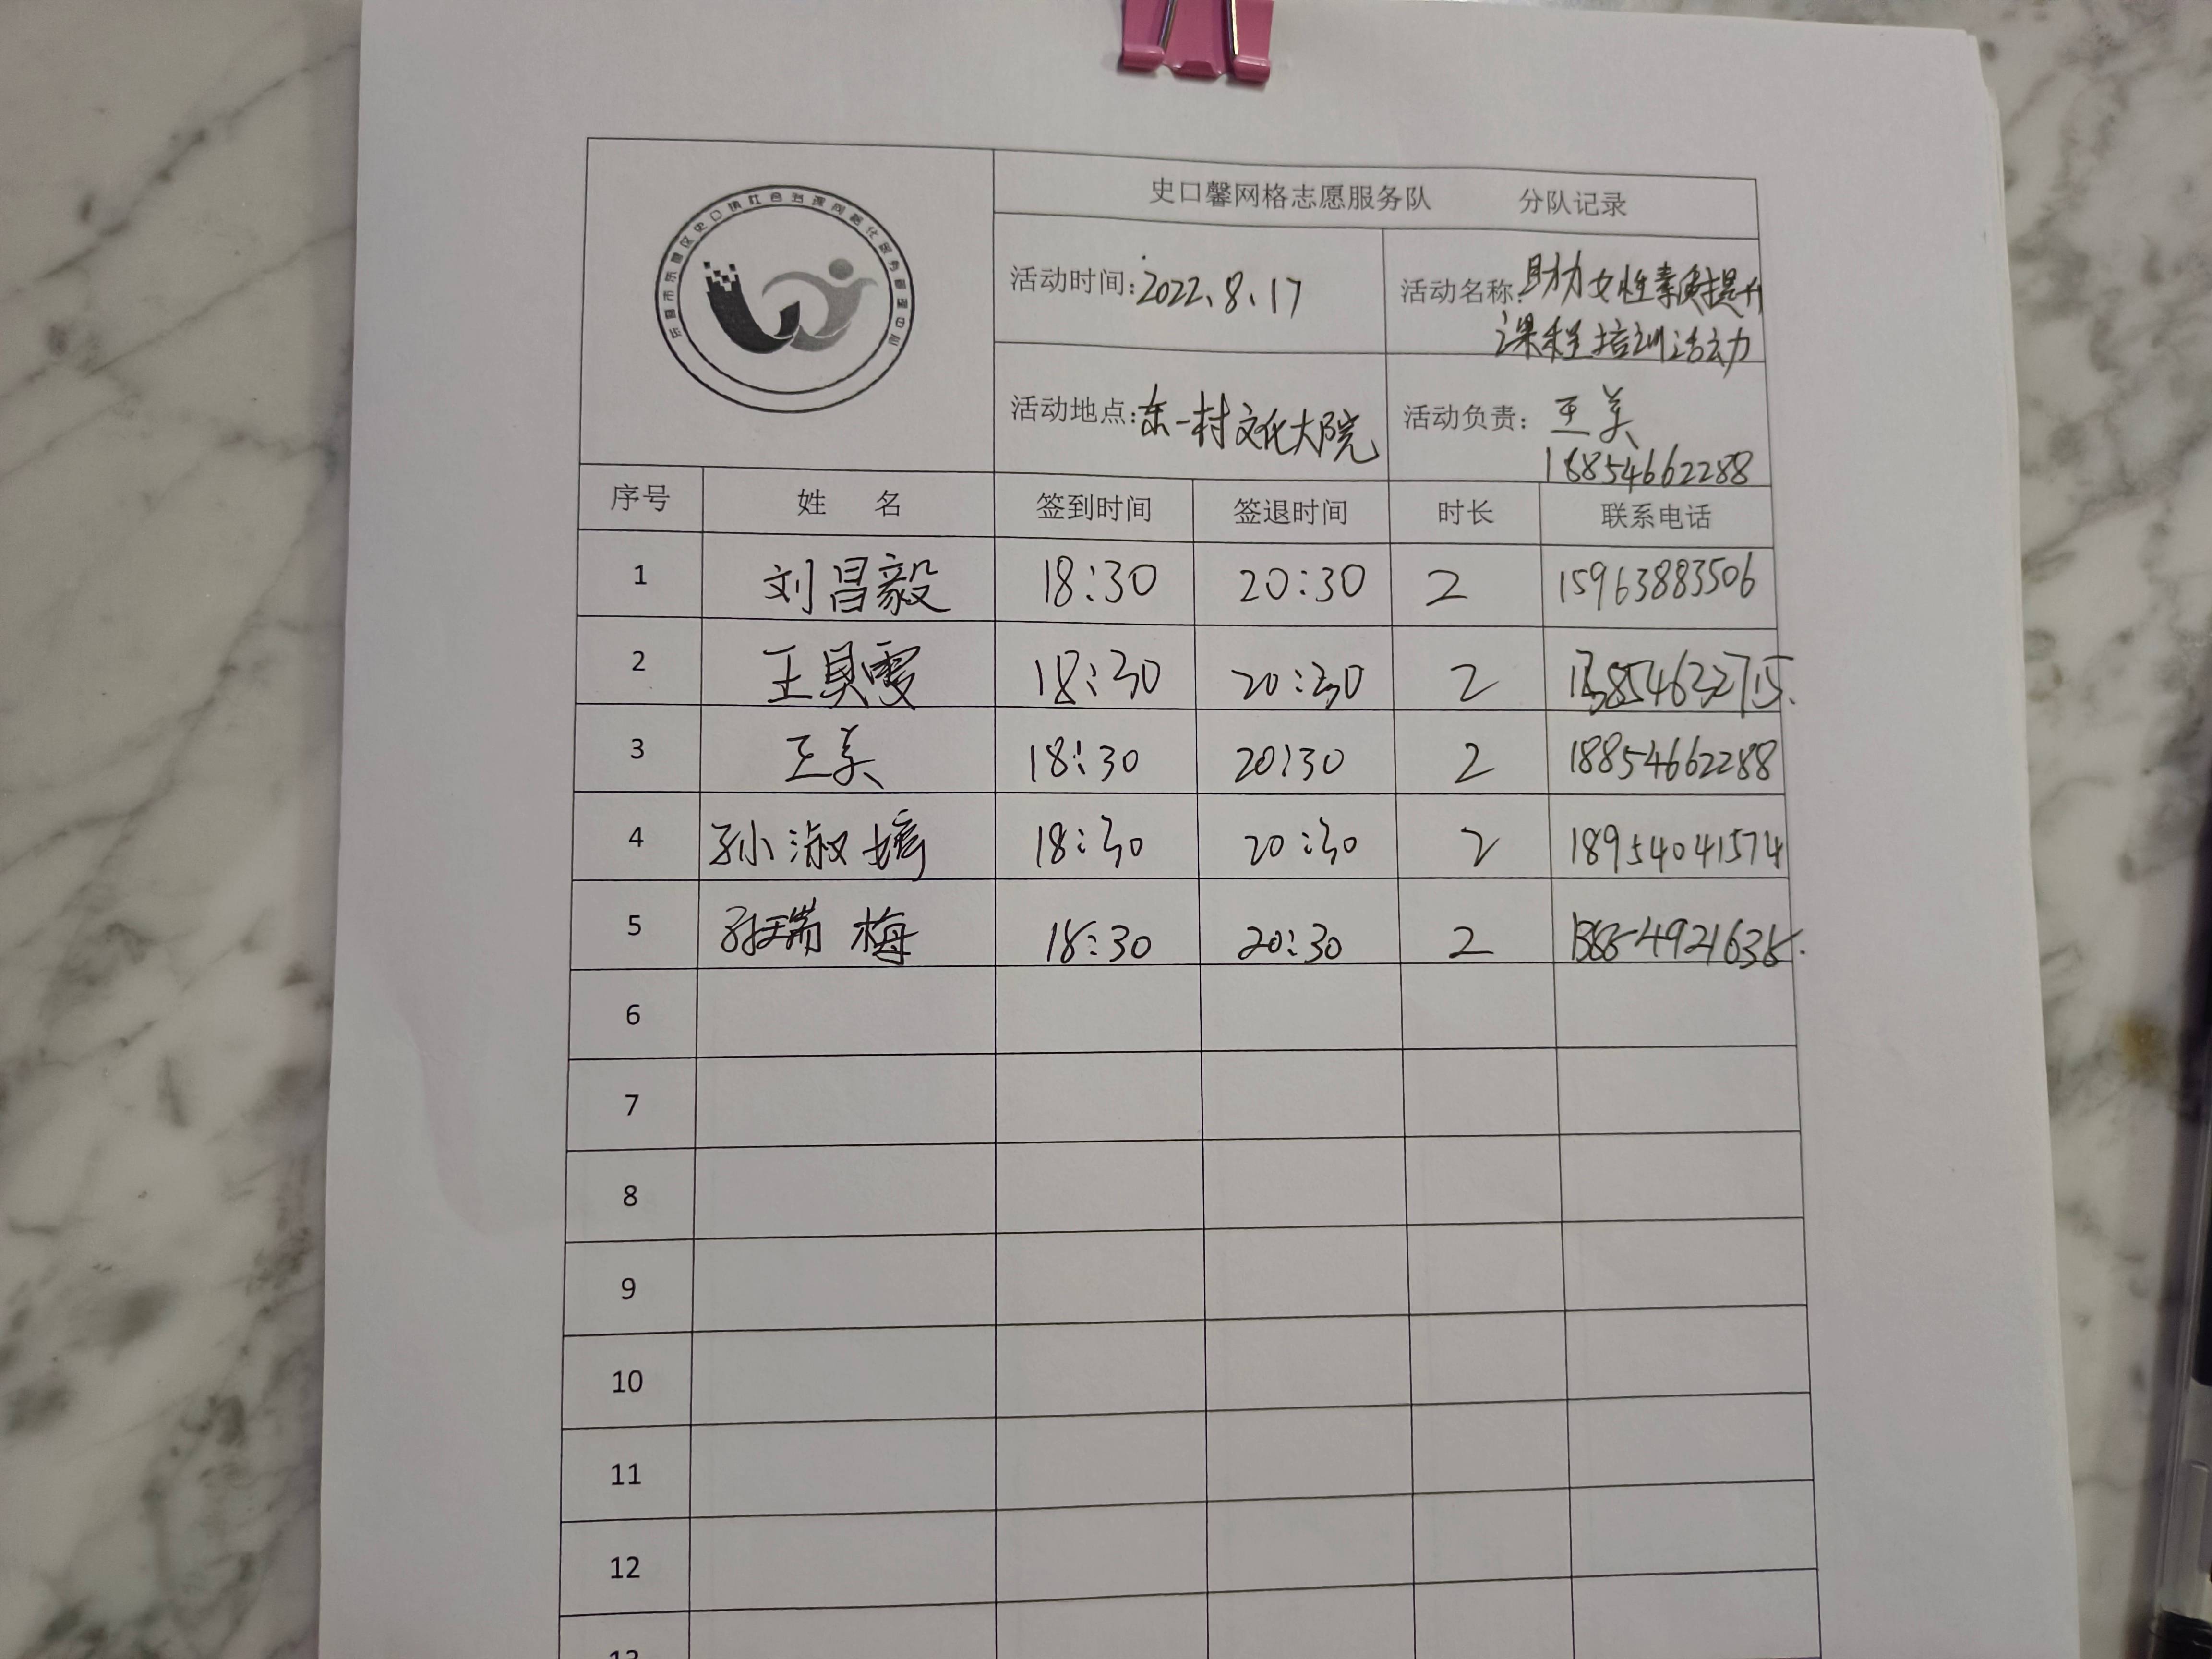 东营市东营区史口镇社会治理网格化服务管理中心
史口馨网格志愿服务队 分队记录
活动时间:2022.8.17
活动名称:助力女性素质提升
课程培训活动
活动地点:东一村文化大院
活动负责:王美
18854662288
序号 姓 名 签到时间 签退时间 时长 联系电话
1 刘昌毅 18:30 20:30 2 15963883506
2 王贝雯 18:30 20:30 2
3 王美 18:30 20:30 2 18854662288
4 孙淑 18:30 20:30 2 18954041574
5 瑞梅 18:30 20:30 2
6
7
8
9
10
11
12
13